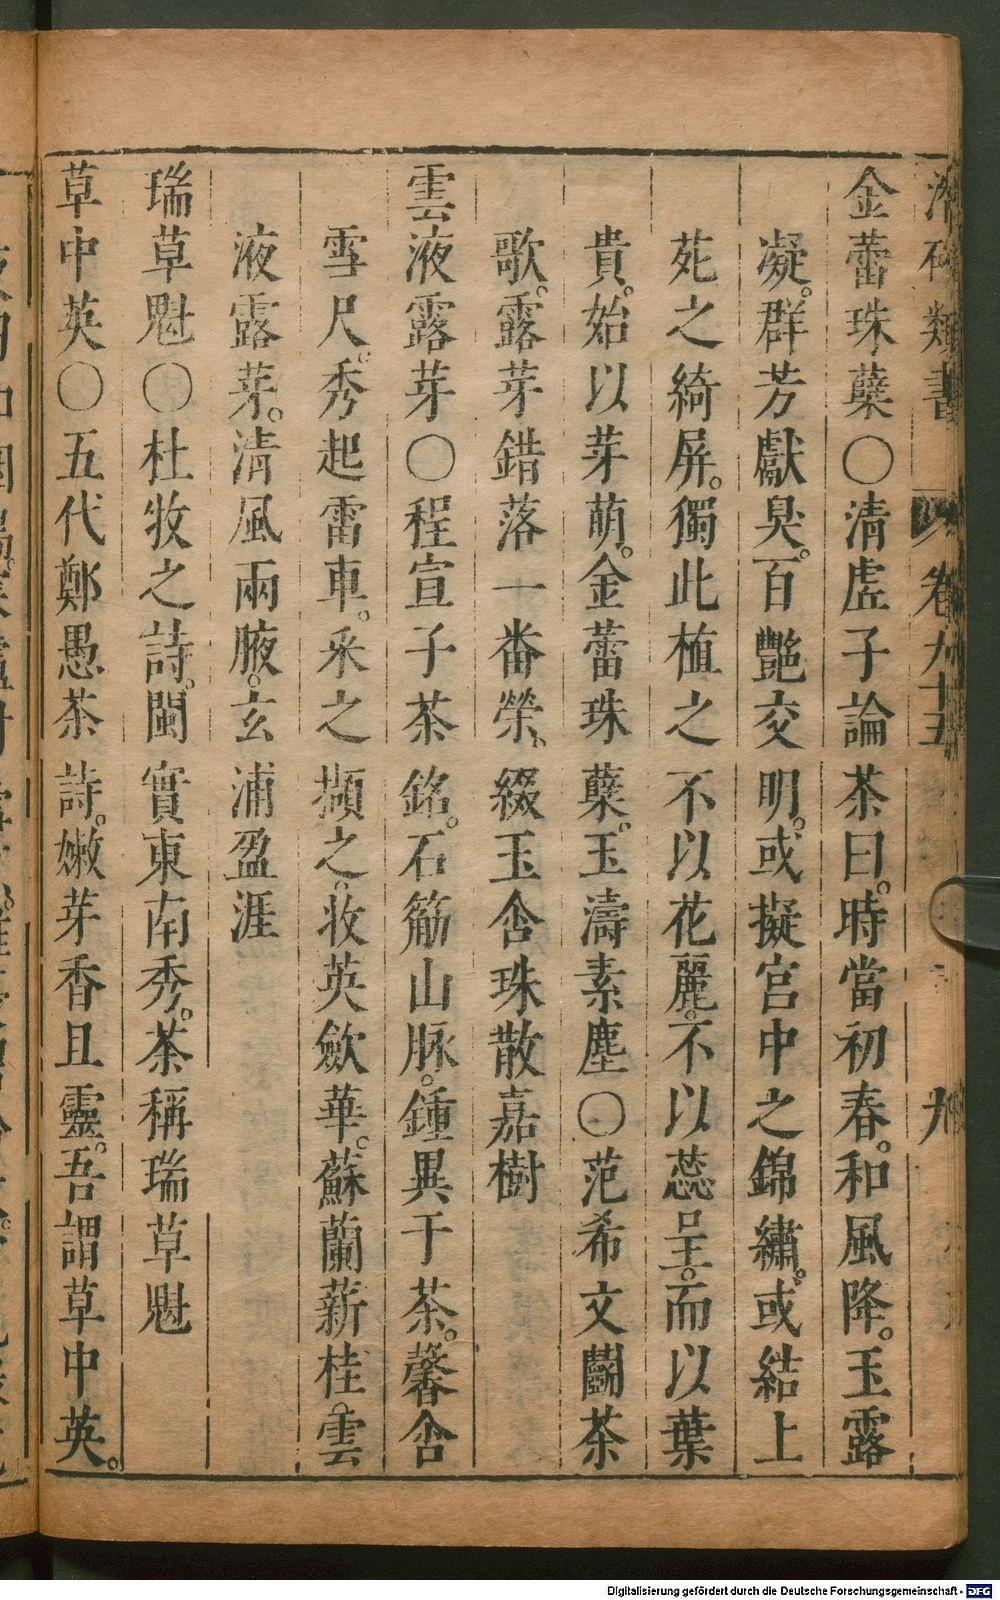 類書 卷九十五 九
金蕾珠蘖〇清虗子論茶曰。時當初春。和風降。玉露
凝。群芳獻臭。百艷交明。或擬宮中之錦繡。或結上
苑之綺屏。獨此植之不以花麗。不以蕊呈。而以葉
貴。始以芽萌。金蕾珠蘖。玉濤素塵〇范希文鬬茶
歌。露芽錯落一畨榮、綴玉含珠散嘉樹
雲液露芽〇程宣子茶銘。石筋山脉。鍾異于茶。馨含
雪尺。秀起雷車。采之擷之。收英歛華。蘇蘭薪桂。雲
液露芽。清風兩腋。玄浦盈涯
瑞草魁〇杜牧之詩。閩實東南秀。茶稱瑞草魁
草中英〇五代鄭愚茶詩。嫩芽香且靈。吾謂草中英。
Digitalisierung gefördert durch die Deutsche Forschungsgemeinschaft - DFG